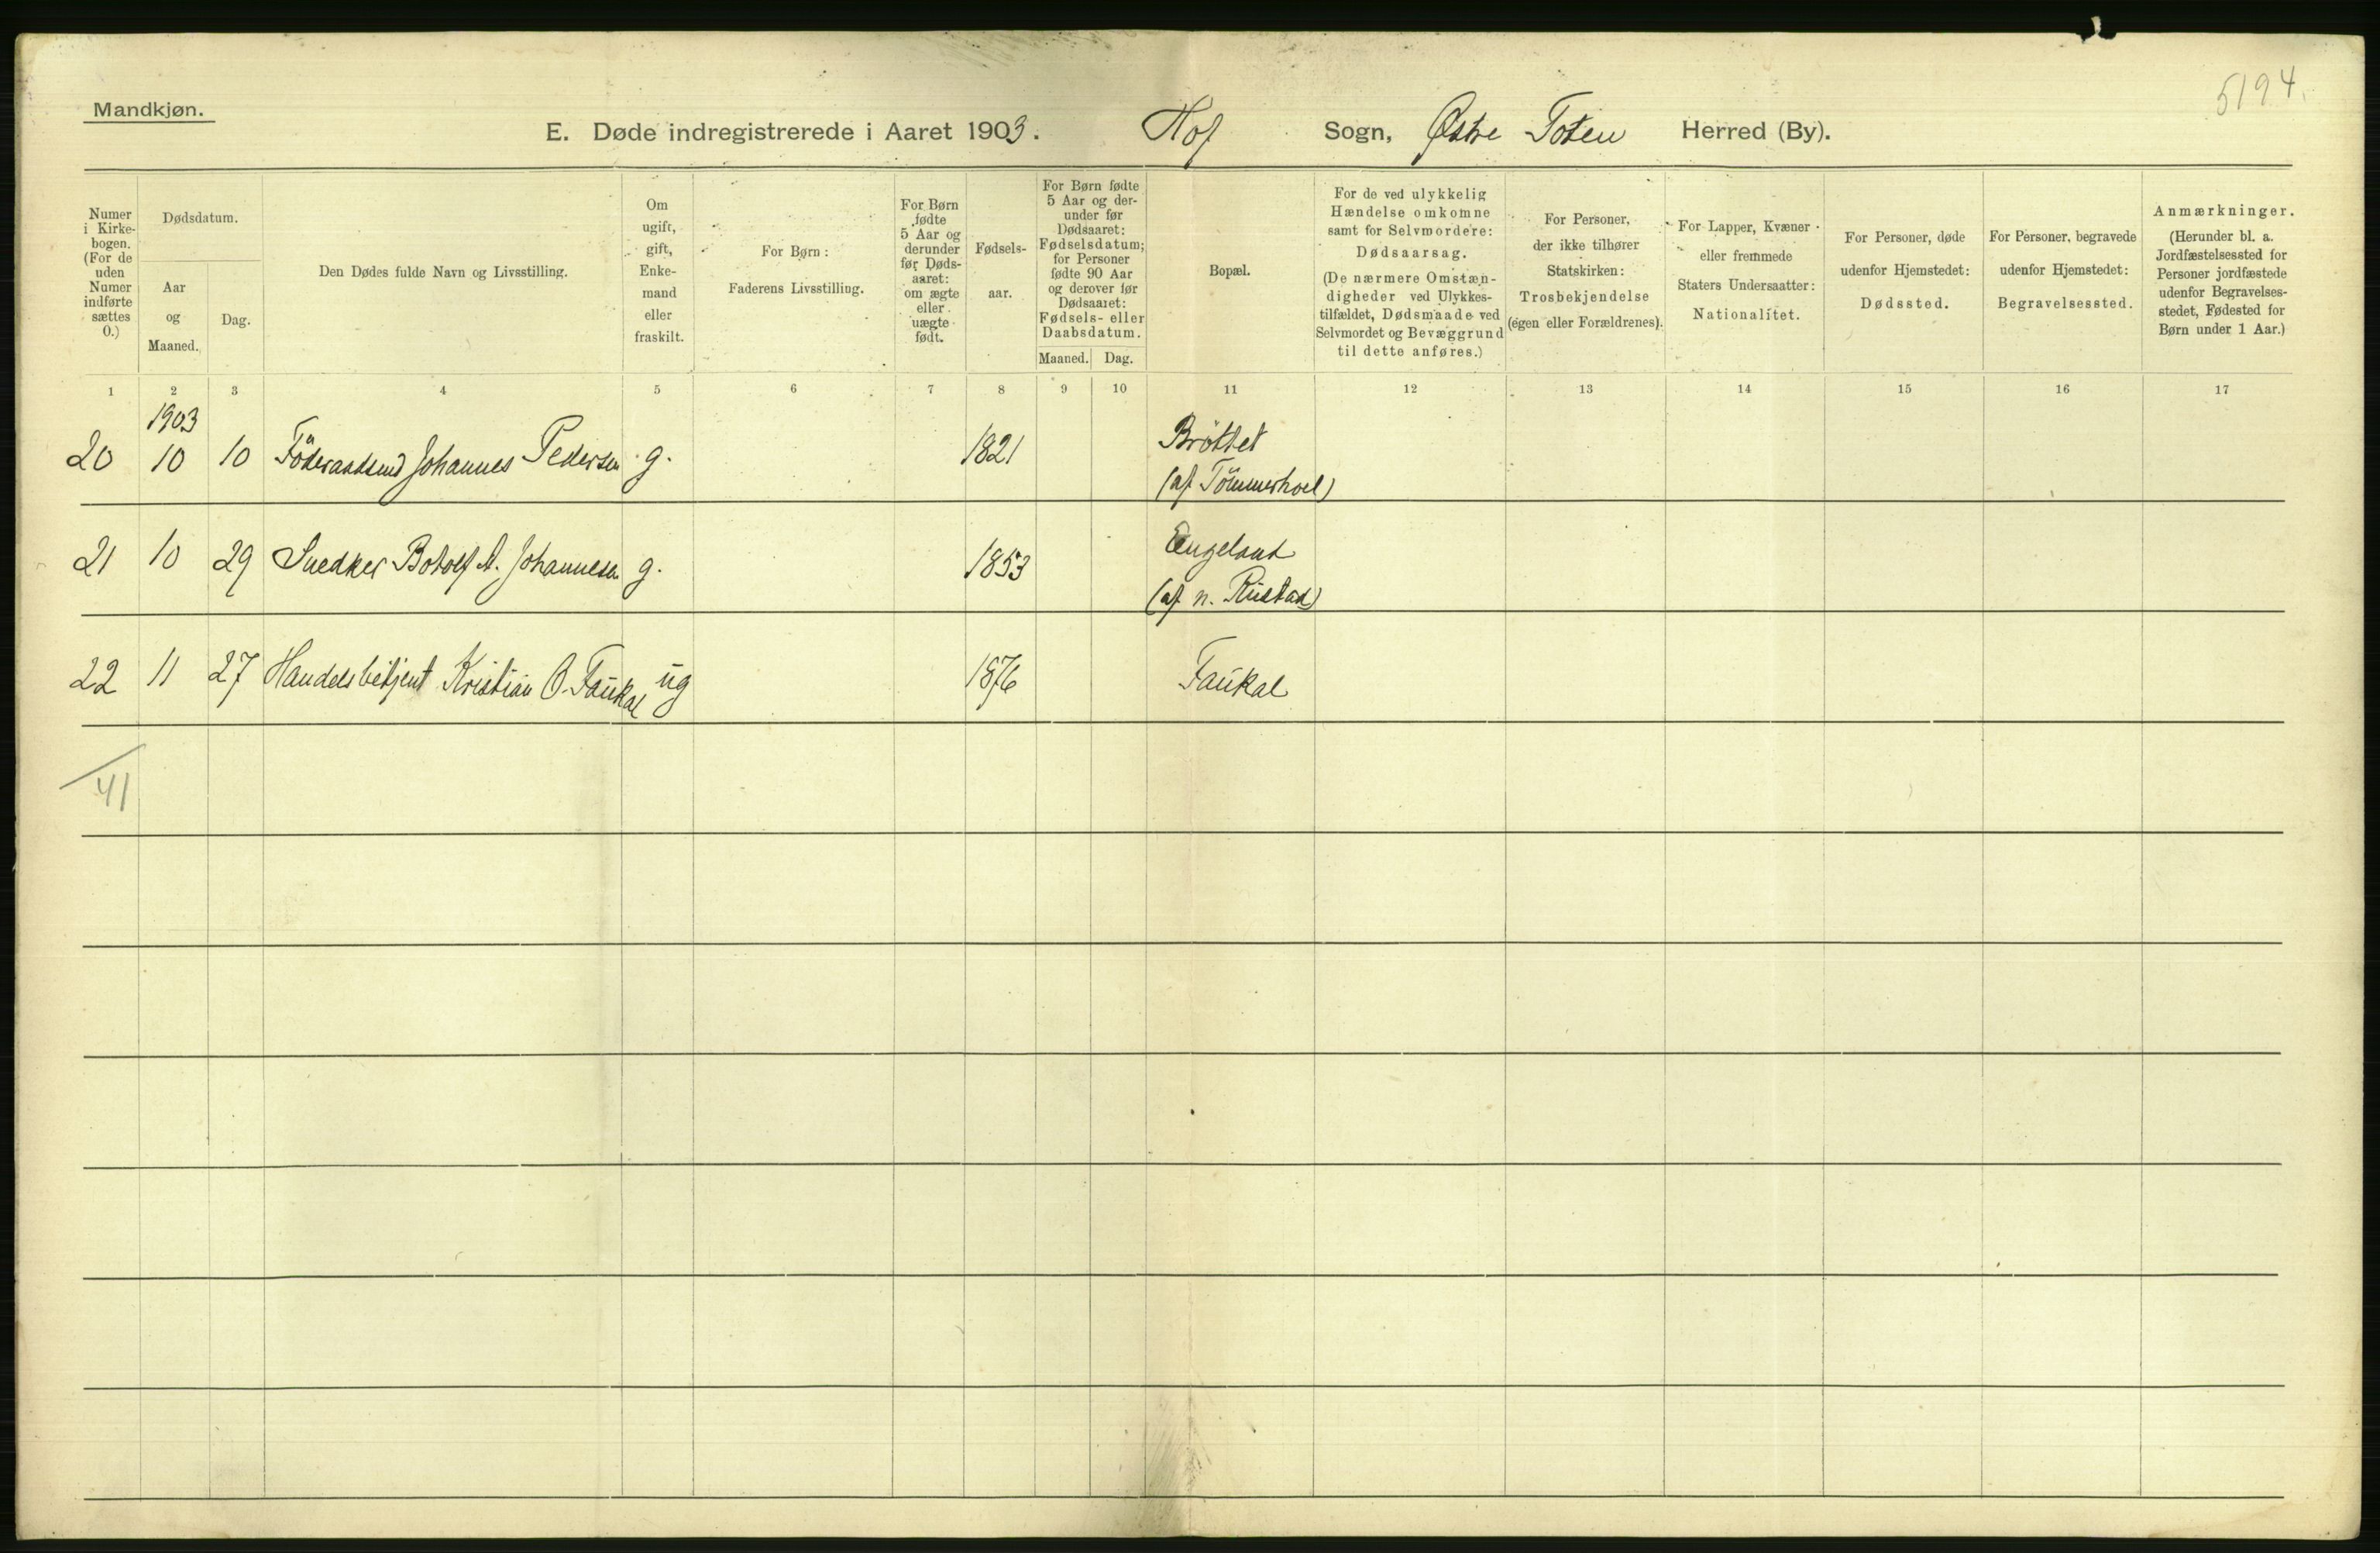 5194.
Mandkjøn.
E. Døde indregistrerede i Aaret 1903. Hof Sogn, Østre Toten Herred (By).
Numer i Kirke-bogen. (For de uden Numer indførte sættes 0.)
Dødsdatum.
Aar og Maaned.
Dag.
Den Dødes fulde Navn og Livsstilling.
Om ugift, gift, Enke-mand eller fraskilt.
For Børn: Faderens Livsstilling.
For Børn fødte 5 Aar og derunder før Døds-aaret: om ægte eller uægte født.
Fødsels-aar.
For Børn fødte 5 Aar og der-under før Dødsaaret: Fødselsdatum; for Personer fødte 90 Aar og derover før Dødsaaret: Fødsels- eller Daabsdatum.
Maaned. Dag.
Bopæl.
For de ved ulykkelig Hændelse omkomne samt for Selvmordere: Dødsaarsag. (De nærmere Omstæn-digheder ved Ulykkes-tilfældet, Dødsmaade ved Selvmordet og Bevæggrund til dette anføres.)
For Personer, der ikke tilhører Statskirken: Trosbekjendelse (egen eller Forældrenes).
For Lapper, Kvæner eller fremmede Staters Undersaatter: Nationalitet.
For Personer, døde udenfor Hjemstedet: Dødssted.
For Personer, begravede udenfor Hjemstedet: Begravelsessted.
Anmærkninger. (Herunder bl. a. Jordfæstelsessted for Personer jordfæstede udenfor Begravelses-stedet, Fødested for Børn under 1 Aar.)
1 2 3 4 5 6 7 8 9 10 11 12 13 14 15 16 17
1903
20 10 10 Föderaadsmd Johannes Pedersen g. 1821 Bröttet
(af Tömmerhoel)
21 10 29 Snedker Botolf A. Johannesen g. 1853 Engeland
(af n. Rustad)
22 11 27 Handelsbetjent Kristian O. Faukal ug 1876 Faukal
41